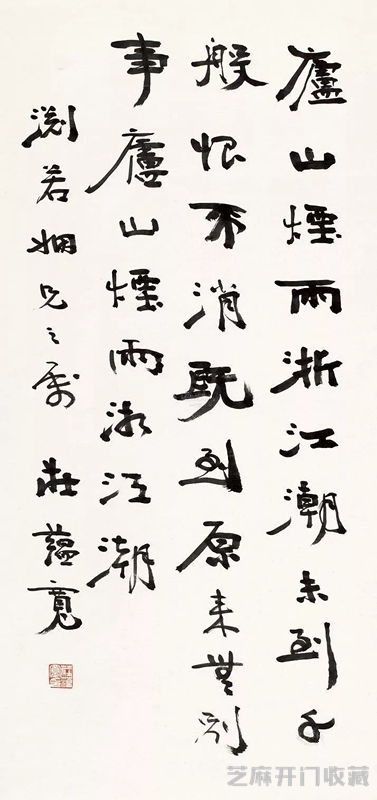 廬山煙雨浙江潮未到千
般恨不消既到原来無别
事廬山煙雨浙江潮
淵若姻兄之属 莊蘊寬
芝麻开门收藏